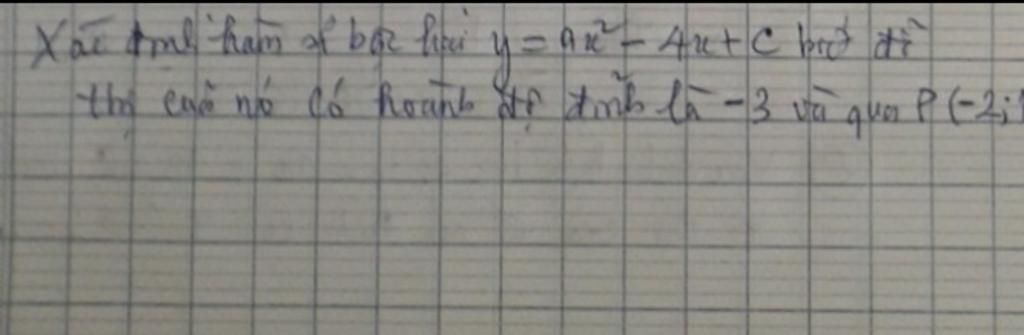 Xác định hàm số bậc hai y = ax² - 4x + c biết đồ
thị của nó có hoành độ đỉnh là -3 và qua P (-2;